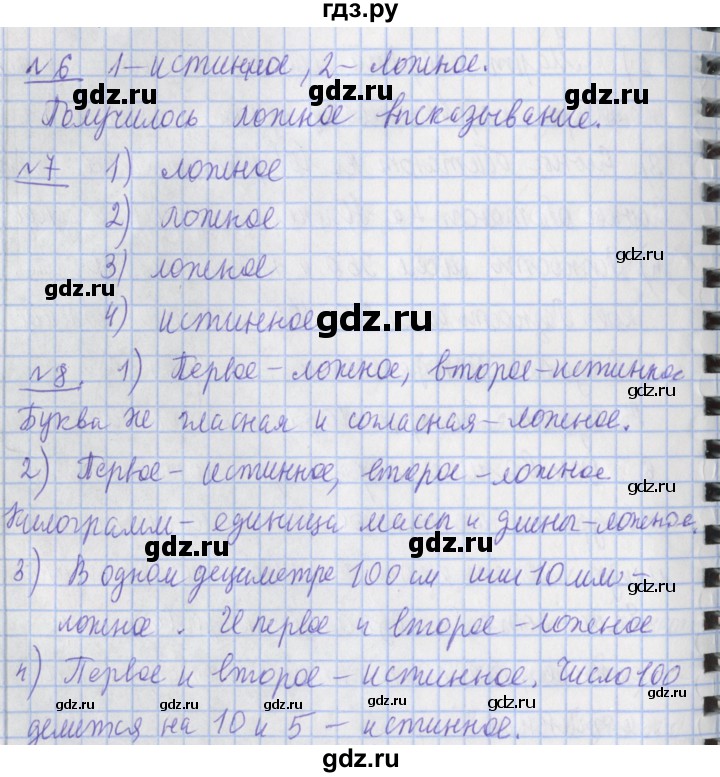 гдз.ру
№6 1-истинное, 2-ложное.
gdz.ru gdz.ru
Получилось ложное высказывание.
№7 1) ложное
2) ложное
gdz.ru
3) ложное
gdz.ru
4) истинное gdz.ru
№8. 1) Первое-ложное, второе-истинное
gdz.ru
Буква же гласная и согласная-ложное.
2) Первое-истинное, второе-ложное
gdz.ru
Килограмм-единица массы и длины-ложное.
gdz.ru gdz.ru
3) В одном дециметре 100 см или 10 мм-
gdz.ru
ложное. И первое и второе-ложное
4) Первое и второе-истинное. Число 100
gdz.ru gdz.ru gdz.ru gdz.ru
делится на 10 и 5 - истинное.
gdz.ru